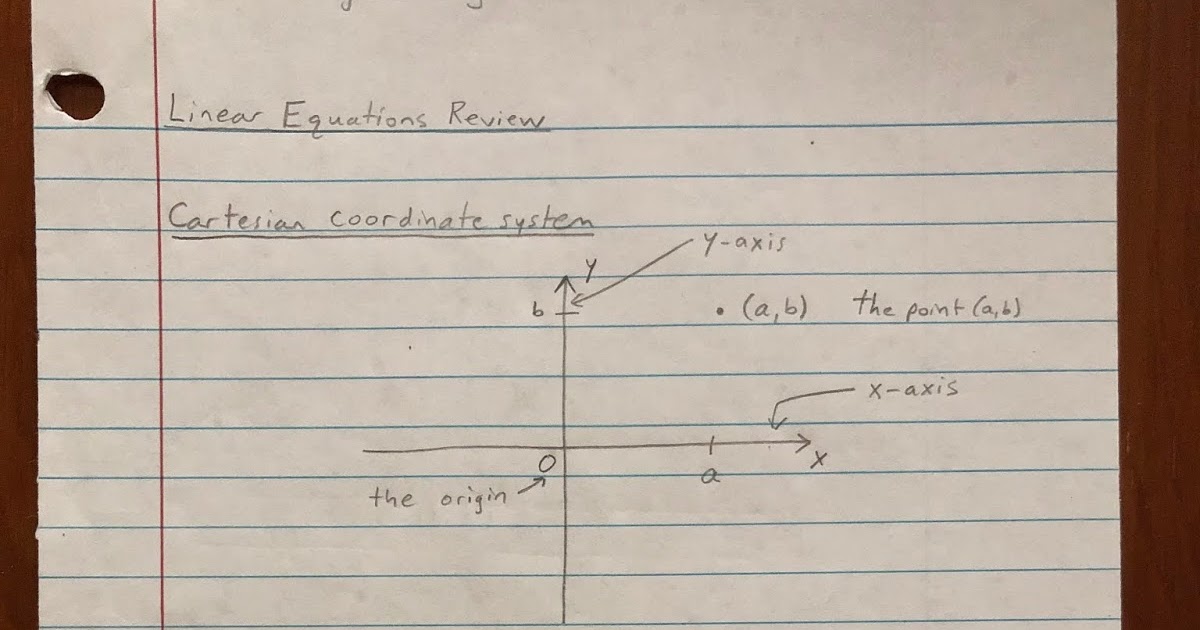 Linear Equations Review
Cartesian coordinate system
y-axis
y
b
(a,b) the point (a,b)
x-axis
x
O
a
the origin